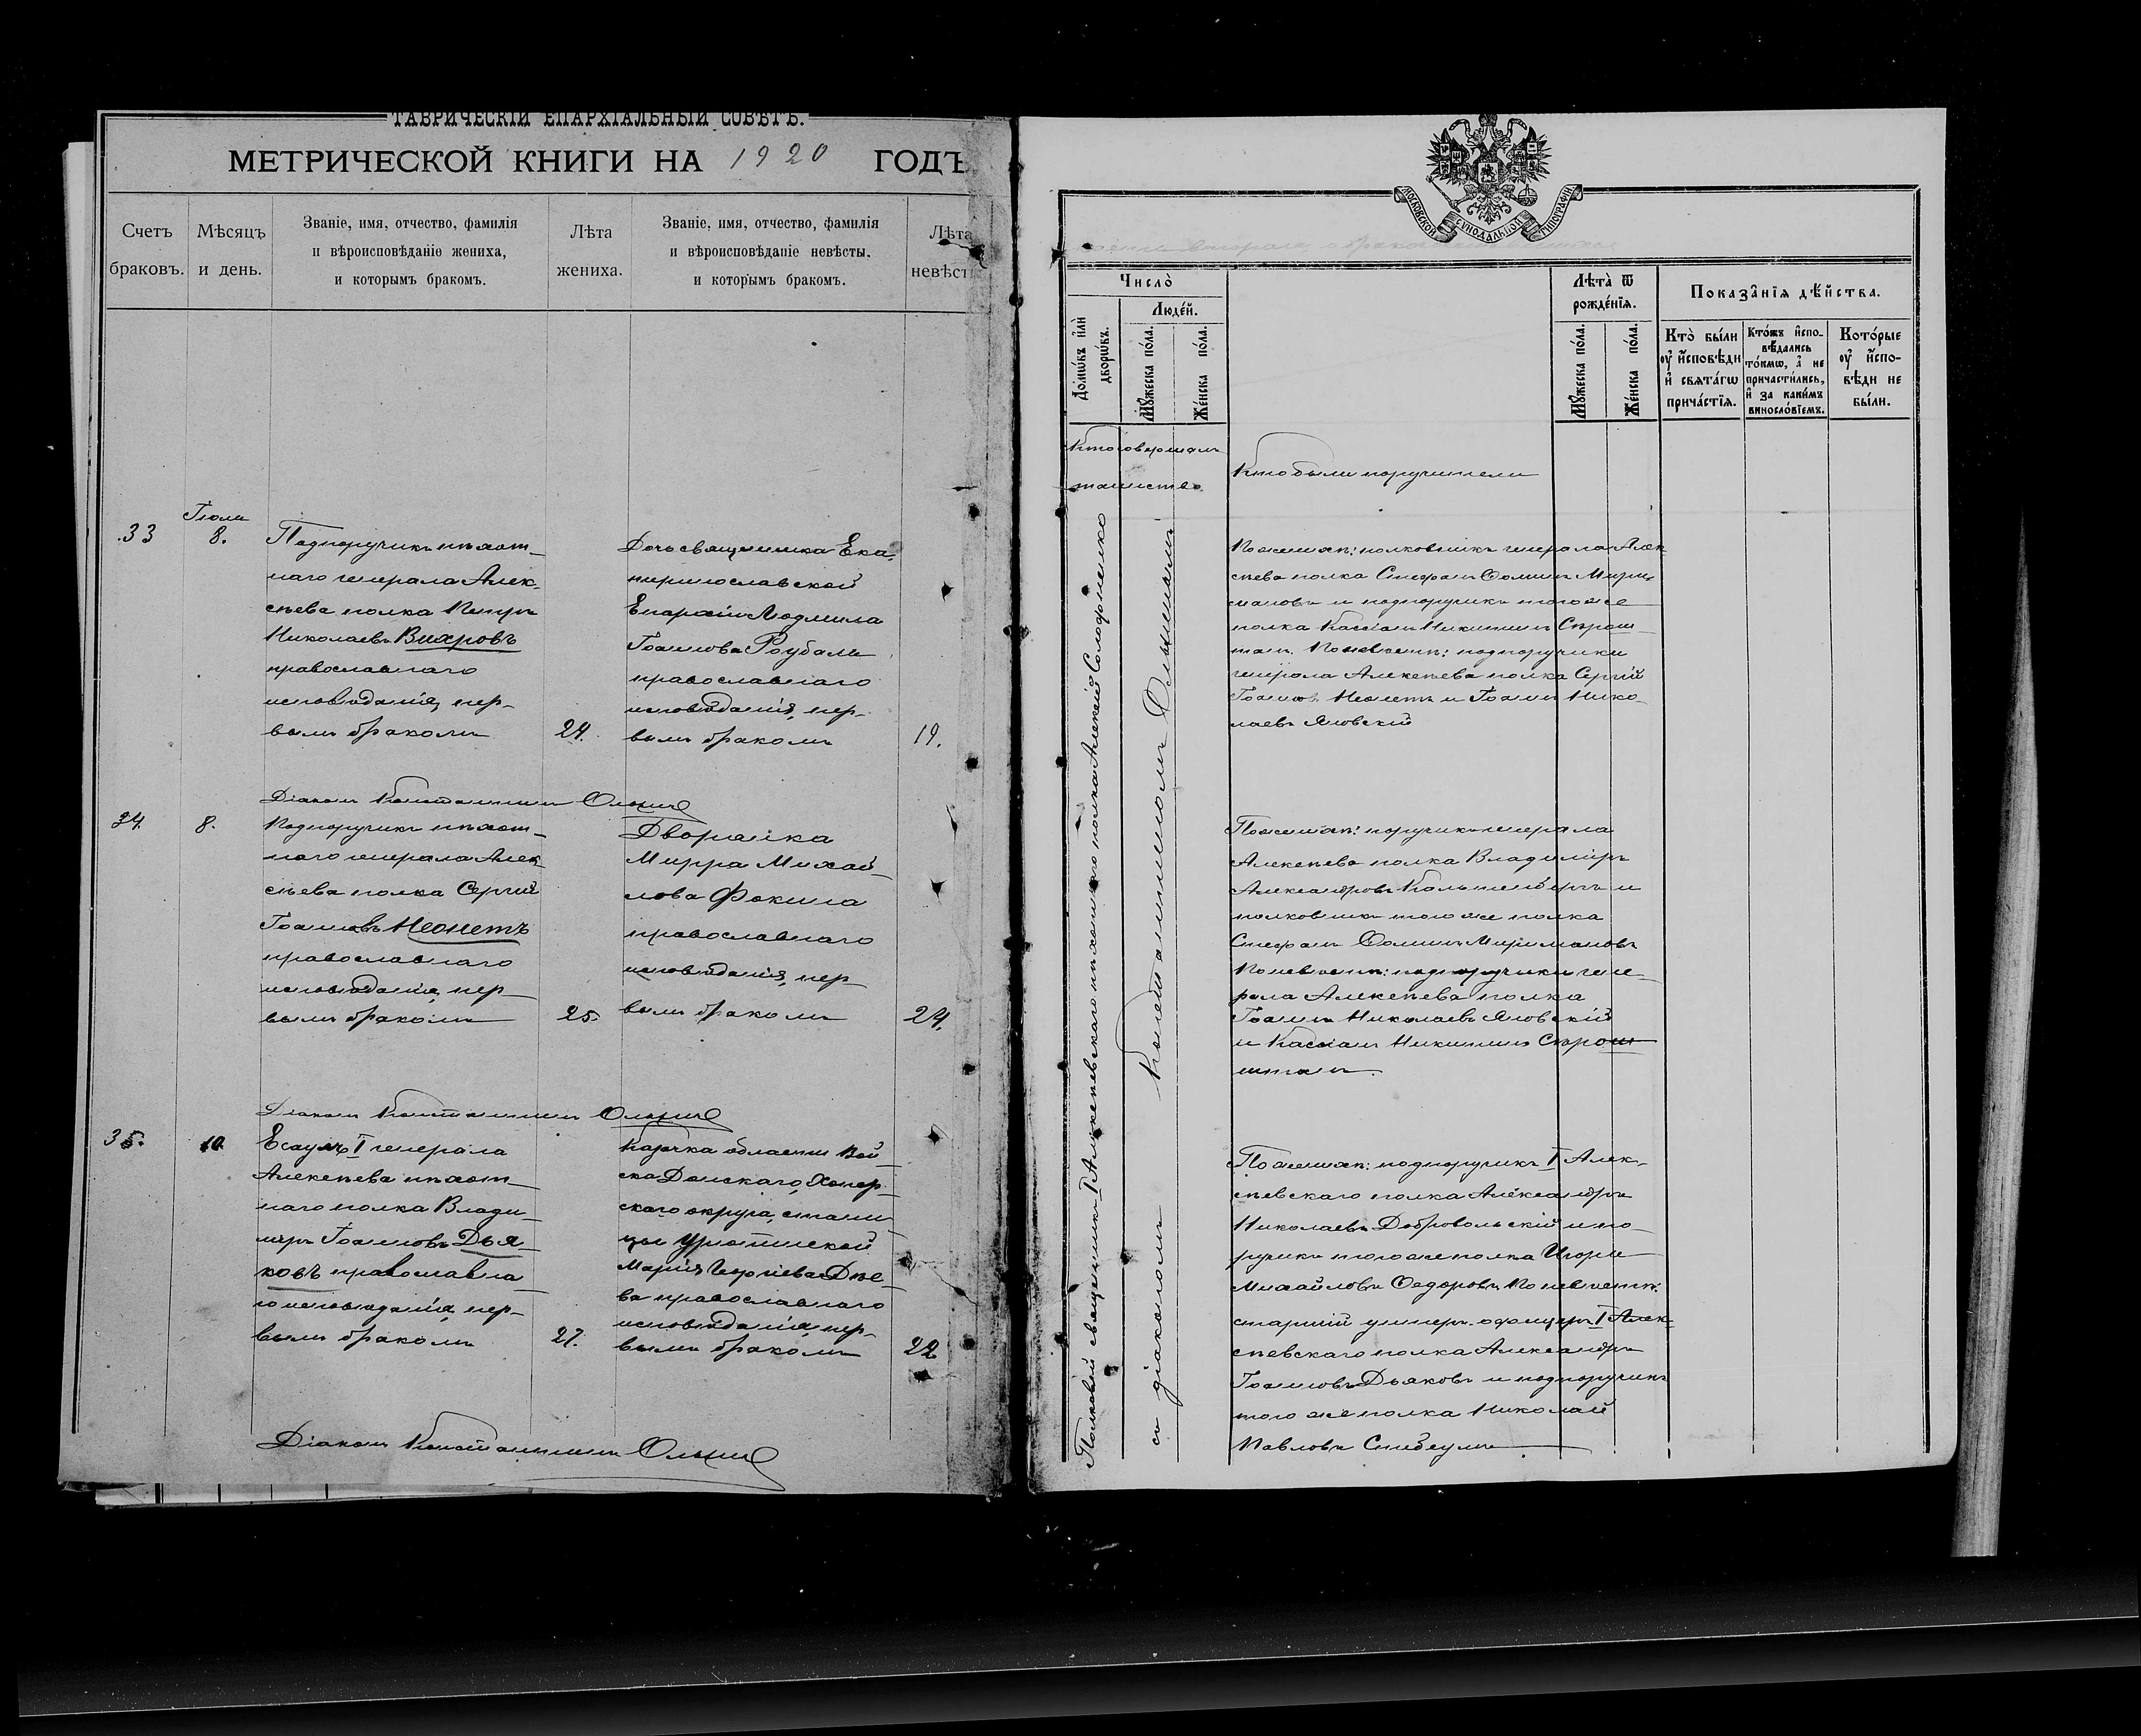 ТАВРИЧЕСКІЙ ЕПАРХІАЛЬНЫЙ СОВѢТЪ.
МЕТРИЧЕСКОЙ КНИГИ НА 1920 ГОДЪ
Счетъ браковъ.
Мѣсяцъ и день.
Званіе, имя, отчество, фамилія
и вѣроисповѣданіе жениха,
и которымъ бракомъ.
Лѣта
жениха.
Званіе, имя, отчество, фамилія
и вѣроисповѣданіе невѣсты,
и которымъ бракомъ.
Лѣта
невѣст
33
Іюля
8.
Подпоручикъ пѣхот-
наго генерала Алек-
сѣева полка Петръ
Николаевъ Вихровъ
православнаго
исповѣданія, пер-
вымъ бракомъ
24.
Дочь священника Ека-
теринославской
Епархіи Людмила
Іоаннова
православнаго
исповѣданія, пер-
вымъ бракомъ
19.
Діаконъ Константинъ
34.
8.
Подпоручикъ пѣхот-
наго генерала Алек-
сѣева полка Сергій
Іоанновъ Неонетъ
православнаго
исповѣданія, пер-
вымъ бракомъ
25.
Дворянка
Мирра Михай-
лова Фокина
православнаго
исповѣданія, пер-
вымъ бракомъ
24.
Діаконъ Константинъ
35.
10.
Есаулъ I генерала
Алексѣева пѣхот-
наго полка Влади-
миръ Іоанновъ Дья-
ковъ православна-
го исповѣданія, пер-
вымъ бракомъ
27.
Казачка области Вой-
ска Донскаго, Хопер-
скаго округа, стани-
цы Урюпинской
Марія Георгіева
православнаго
исповѣданія, пер-
вымъ бракомъ
22
Діаконъ Константинъ
МОСКОВСКОЙ СѴНОДАЛЬНОЙ ТИПОГРАФІИ
Число̀
Домѡ́въ и҆лѝ дворѡ́въ.
Люде́й.
Мꙋ́жеска по́ла.
Же́нска по́ла.
Лѣ́та̀ ѿ
рожде́нїѧ.
Мꙋ́жеска по́ла.
Же́нска по́ла.
Показа̑нїѧ дѣ́йства.
Кто̀ бы́ли
ᲂу҆ и҆́сповѣди
и҆ свѧта́гѡ
прича́стїѧ.
Кто́жъ и҆спо-
вѣ́дались
то́кмѡ, а҆ не
причасти́лись,
и҆ за каки́мъ
виносло́вїемъ.
Кото́рые
ᲂу҆ и҆́спо-
вѣди не
бы́ли.
Кто совершалъ
таинство
Кто были поручители
Полковой священникъ I Алексѣевскаго пѣхотнаго полка Алексій
съ діакономъ Константиномъ
По женихѣ: полковникъ генерала Алек-
сѣева полка Стефанъ Ѳоминъ Мири-
мановъ и подпоручикъ того же
полка Кассіанъ Никитинъ
По невѣстѣ: подпоручики
генерала Алексѣева полка Сергій
Іоанновъ Неонетъ и Іоаннъ Нико-
лаевъ Яновскій
По женихѣ: поручикъ генерала
Алексѣева полка Владиміръ
Александровъ и
полковникъ того же полка
Стефанъ Ѳоминъ Миримановъ
По невѣстѣ: подпоручики гене-
рала Алексѣева полка
Іоаннъ Николаевъ Яновскій
и Кассіанъ Никитинъ
По женихѣ: подпоручикъ I Алек-
сѣевскаго полка Александръ
Николаевъ Добровольскій и по-
ручикъ того же полка Игорь
Михайловъ Ѳедоровъ. По невѣстѣ:
старшій унтеръ-офицеръ I Алек-
сѣевскаго полка Александръ
Іоанновъ Дьяковъ и подпоручикъ
того же полка Николай
Павловъ